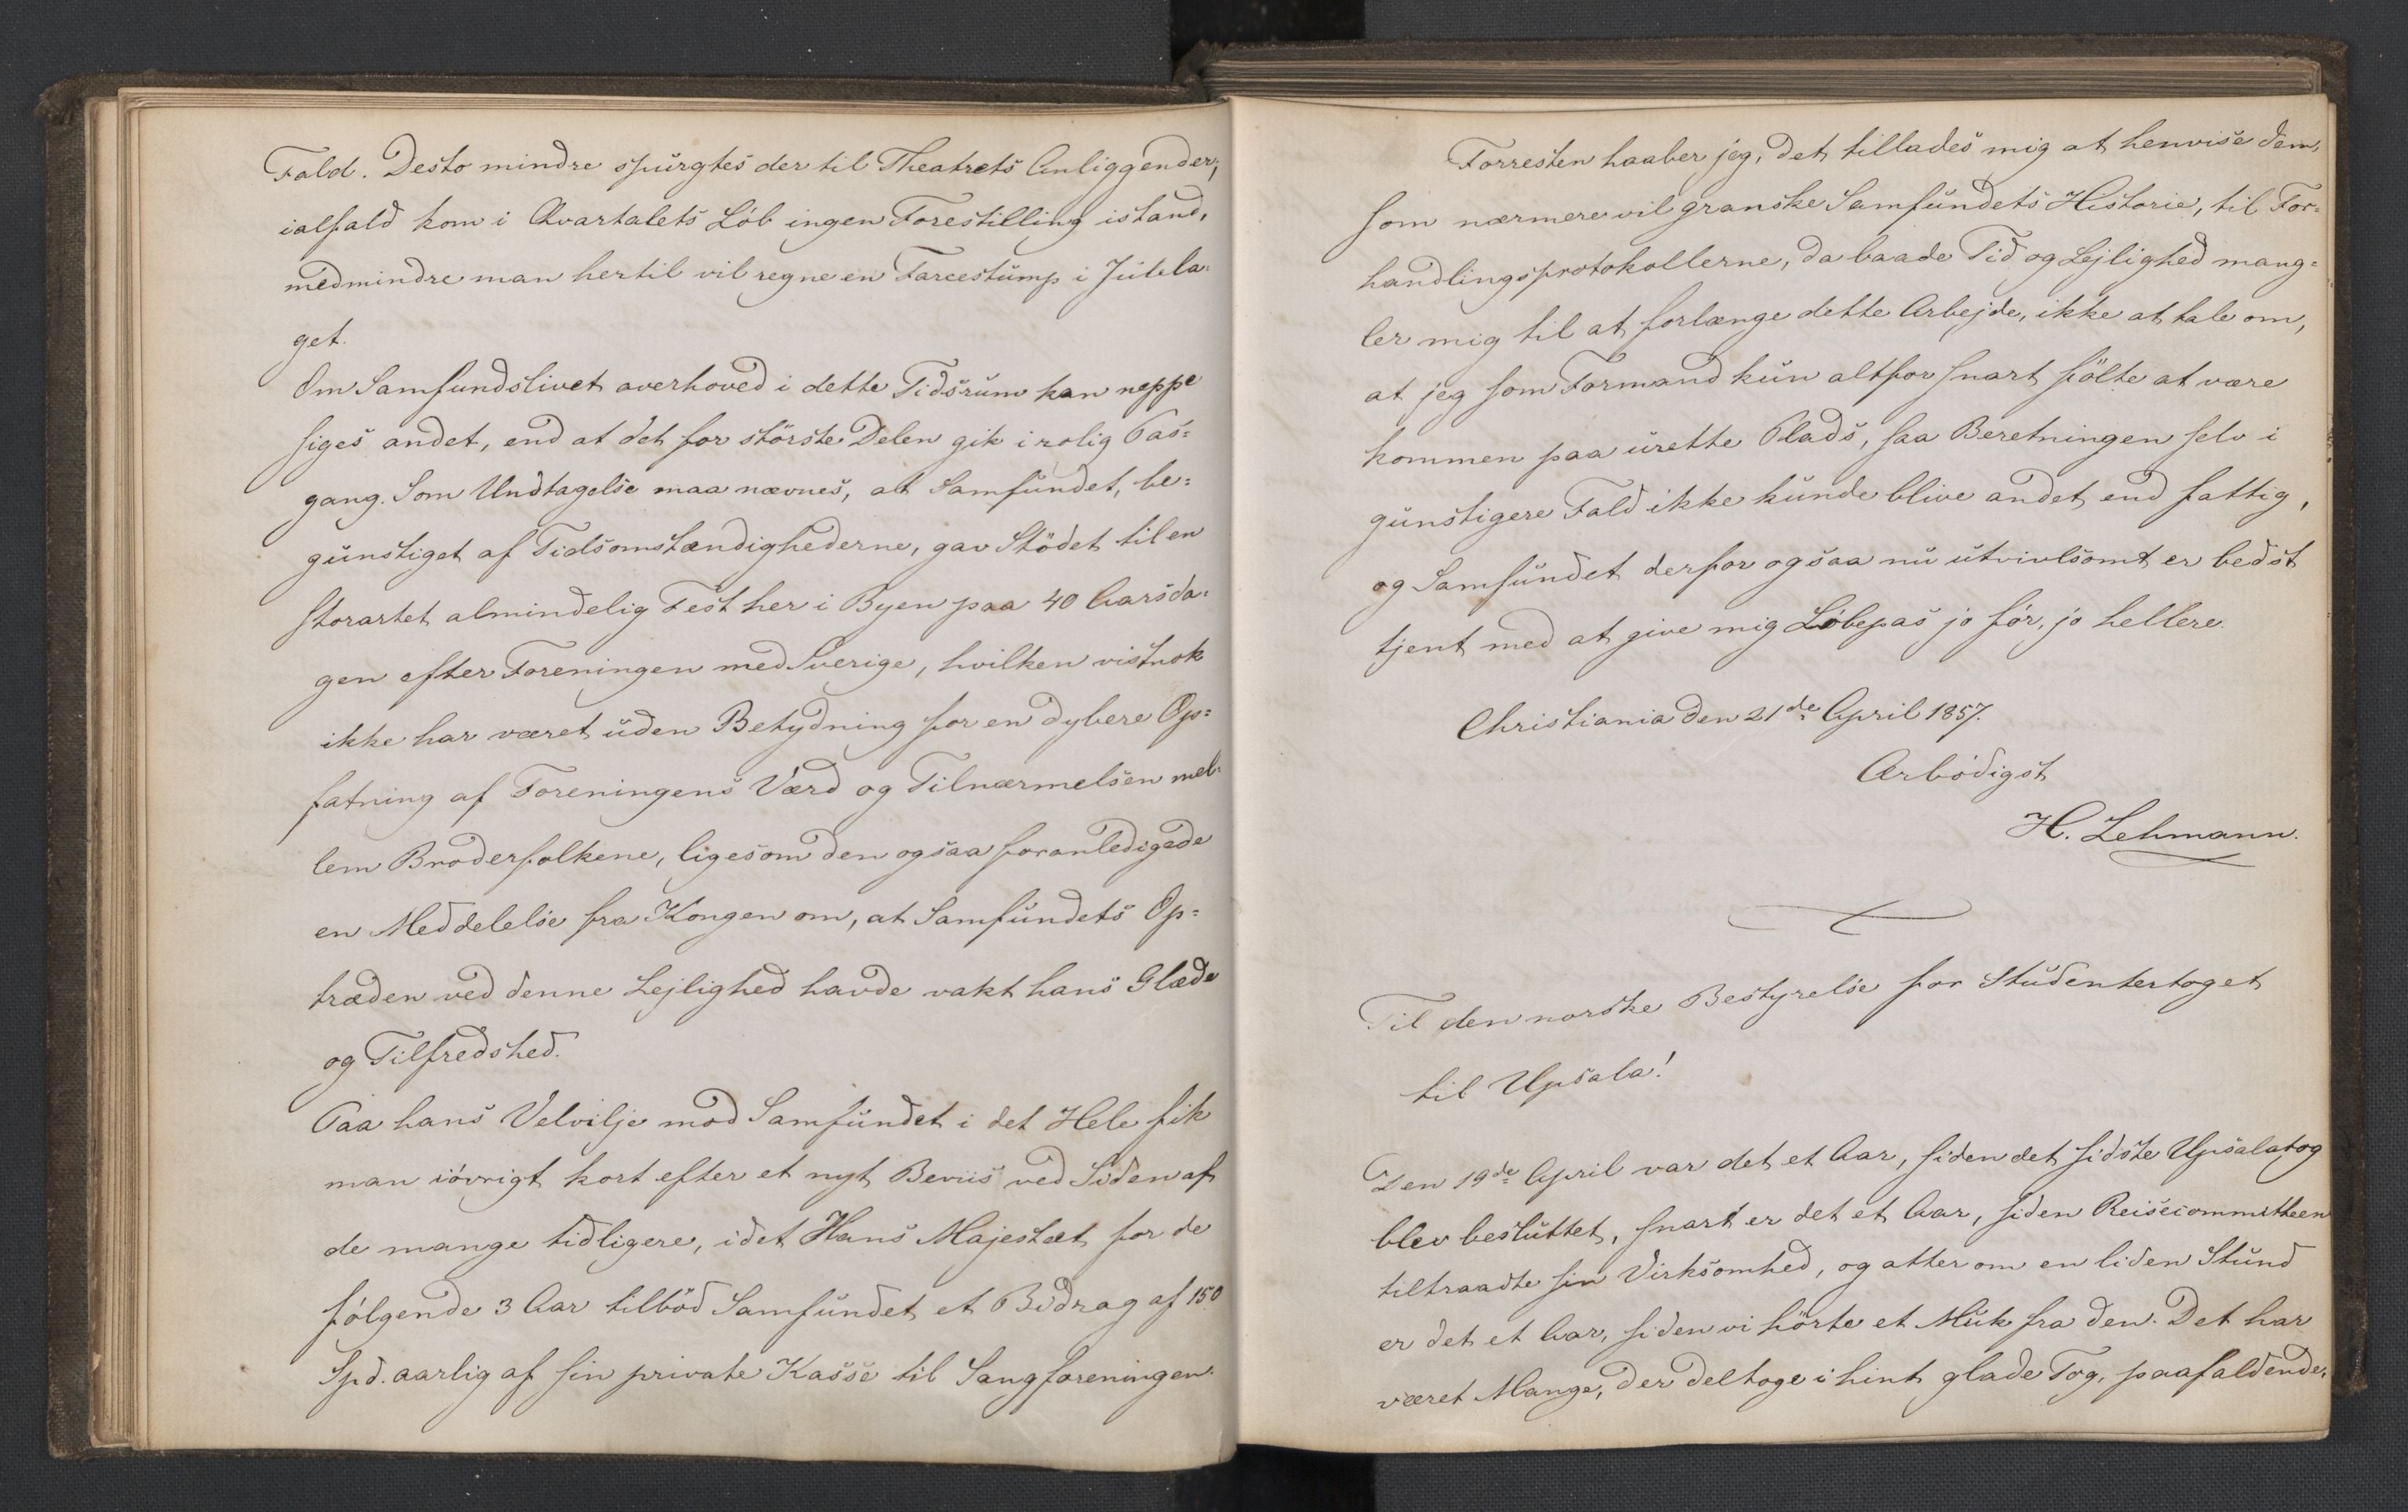 Fald. Desto mindre spurgtes der til Theatrets Anliggender;
ialfald kom i Qvartalets Løb ingen Forestilling istand,
medmindre man hertil vil regne en Farcestump i Julela-
get.
Om Samfundslivet overhoved i dette Tidsrum kan neppe
siges andet, end at det for störste Delen gik i rolig Pas-
gang. Som Undtagelse maa nævnes, at Samfundet, be-
gunstiget af Tidsomstændighederne, gav Stödet til en
storartet almindelig Fest her i Byen paa 40 Aarsda-
gen efter Foreningen med Sverige, hvilken vistnok
ikke har været uden Betydning for en dybere Op-
fatning af Foreningens Værd og Tilnærmelsen mel-
lem Broderfolkene, ligesom den ogsaa foranledigede
en Meddelelse fra Kongen om, at Samfundets Op-
træden ved denne Lejlighed havde vakt hans Glæde
og Tilfredshed.
Paa hans Velvilje mod Samfundet i det Hele fik
man iøvrigt kort efter et nyt Beviis ved Siden af
de mange tidligere, idet Hans Majestæt for de
følgende 3 Aar tilböd Samfundet et Bidrag af 150
Spd. aarlig af sin private Kasse til Sangforeningen.
Forresten haaber jeg, det tillades mig at henvise dem,
som nærmere vil granske Samfundets Historie, til For-
handlingsprotokollerne, da baade Tid og Lejlighed mang-
ler mig til at forlænge dette Arbejde, ikke at tale om,
at jeg som Formand kun altfor snart fölte at være
kommen paa urette Plads, saa Beretningen selv i
gunstigere Fald ikke kunde blive andet end fattig,
og Samfundet derfor ogsaa nu utvivlsomt er bedst
tjent med at give mig Løbepas jo før, jo hellere.
Christiania den 21de April 1857.
Arbødigst
H. Lehmann.
Til den norske Bestyrelse for Studentertoget
til Upsala!
Den 19de April var det et Aar, siden det sidste Upsalatog
blev besluttet, snart er det et Aar, siden Reisecommitteen
tiltraadte sin Virksomhed, og atter om en liden Stund
er det et Aar, siden vi hörte et Muk fra den. Det har
været Mange, der deltoge i hint glade Tog, paafaldende,